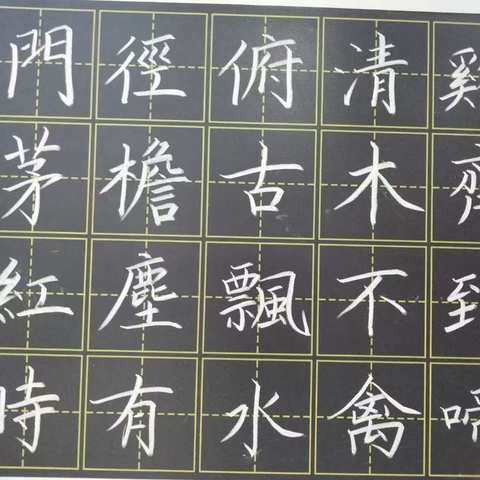 門徑俯清谿
茅檐古木齊
紅塵飄不到
時有水禽啼